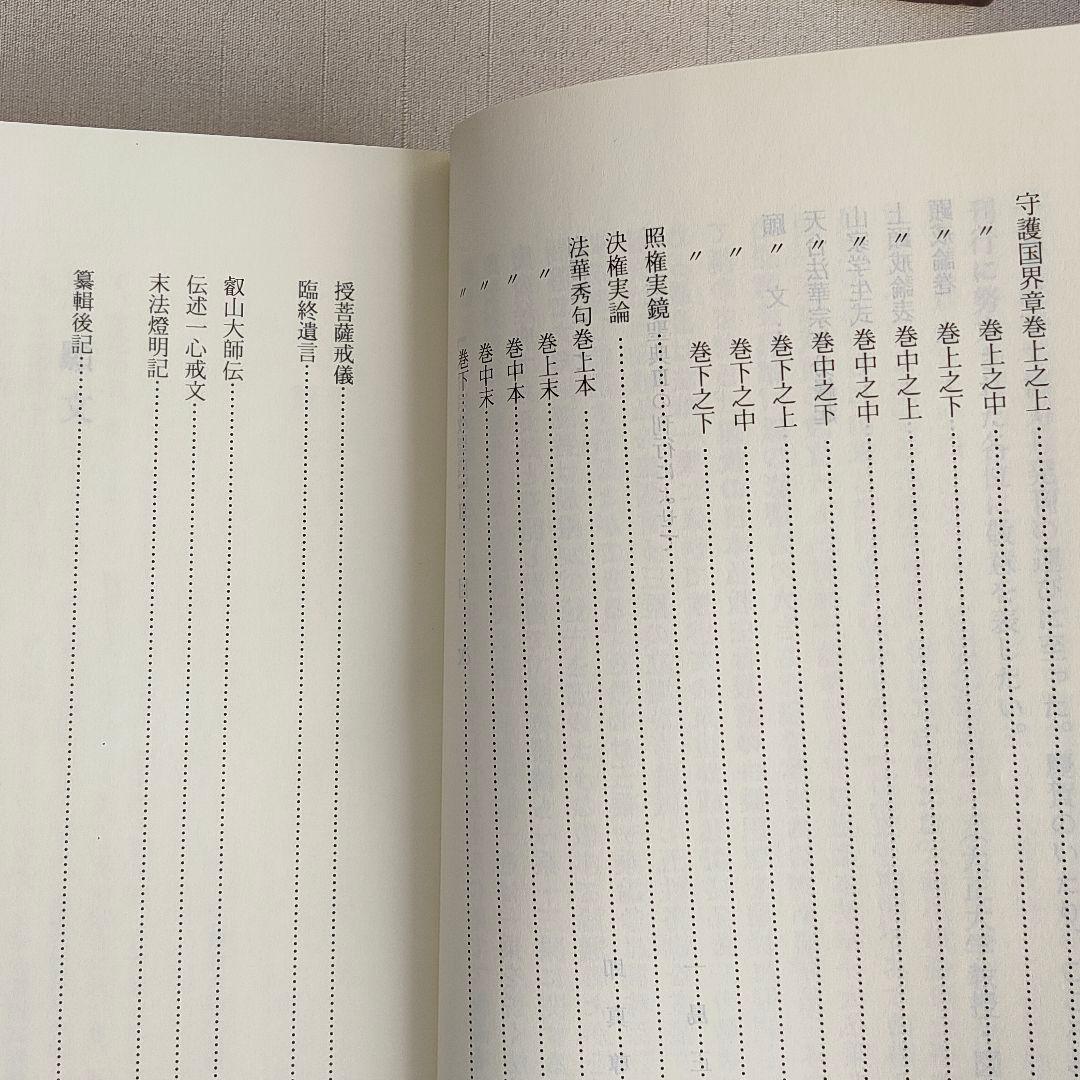 守護国界章巻上之上
〃 巻上之中
〃 巻上之下
〃 巻中之上
〃 巻中之中
〃 巻中之下
〃 巻下之上
〃 巻下之中
〃 巻下之下
照権実鏡
決権実論
法華秀句巻上本
〃 巻上末
〃 巻中本
〃 巻中末
〃 巻下
授菩薩戒儀
臨終遺言
叡山大師伝
伝述一心戒文
末法燈明記
纂輯後記